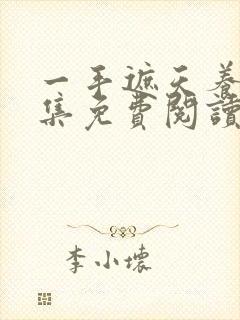 一手遮天養
集免費閱讀
李小壞